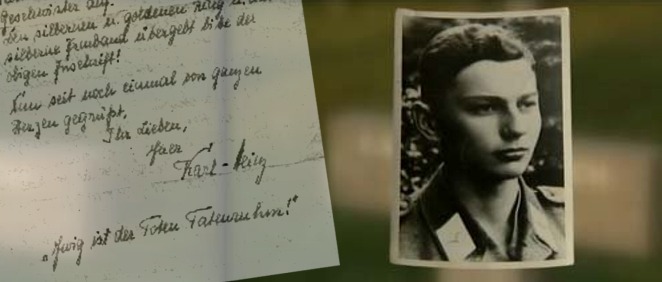 Geschwister auf.
Den silbernen u. goldenen Ring u.
silberne Armband übergebt bitte der
obigen Anschrift!
Nun seit noch einmal von ganzen
Herzen gegrüßt,
Ihr Lieben,
Euer
Karl-Heinz
„Ewig ist der Toten Tatenruhm!“